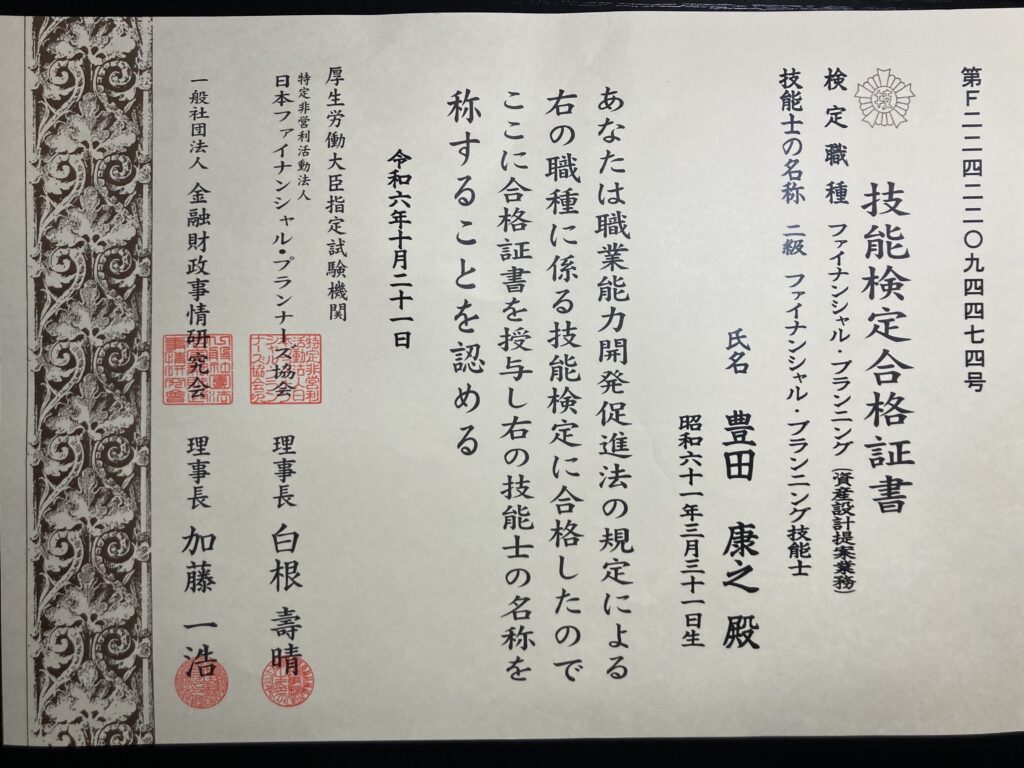 第F二二四二二〇九四四七四号
技能検定合格証書
検定職種 ファイナンシャル・プランニング(資産設計提案業務)
技能士の名称 二級 ファイナンシャル・プランニング技能士
氏名 豊田 康之 殿
昭和六十一年三月三十一日生
あなたは職業能力開発促進法の規定による
右の職種に係る技能検定に合格したので
ここに合格証書を授与し右の技能士の名称を
称することを認める
令和六年十月二十一日
厚生労働大臣指定試験機関
特定非営利活動法人
日本ファイナンシャル・プランナーズ協会 理事長 白根 壽晴
一般社団法人 金融財政事情研究会 理事長 加藤 一浩